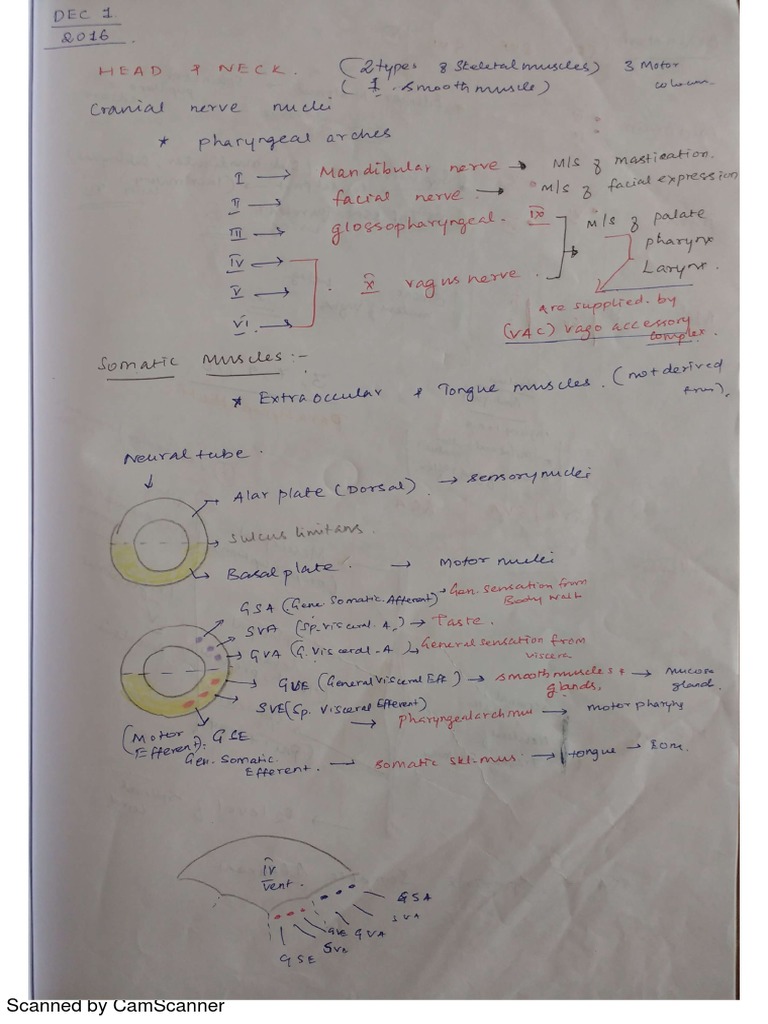 DEC 1
2016
HEAD & NECK. (2 types of skeletal muscles) 3 Motor
(1. smooth muscle) column
Cranial nerve nuclei
* Pharyngeal arches
I → Mandibular nerve → M/S of mastication.
II → facial nerve. → M/S of facial expression
III → glossopharyngeal. IX M/S of palate
IV → pharynx
V → X vagus nerve. Larynx.
VI. → are supplied by
(VAC) vago accessory
complex.
Somatic Muscles :-
* Extraoccular & Tongue muscles. (not derived
from).
Neural tube.
Alar plate (Dorsal) → sensory nuclei
Sulcus limitans.
Basal plate. → Motor nuclei
GSA (Gene. Somatic. Afferent) → Gen. sensation from
Body wall
SVA (Sp. visceral. A.) → Taste.
GVA (G. Visceral. A) → General sensation from
viscera
GVE (General Visceral Eff) → smooth muscles & → mucosa
glands. gland.
SVE (Sp. Visceral Efferent)
→ pharyngeal arch mus → motor pharynx
(Motor
Efferent). GSE
Gen. Somatic
Efferent. → somatic skl. mus. → tongue → Eom.
IV
vent.
GSA
SVA
GVE GVA
SVE
GSE
Scanned by CamScanner